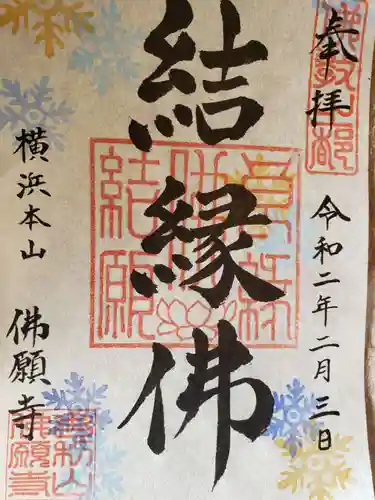 奉拝
令和二年二月三日
結縁佛
横浜本山
佛願寺